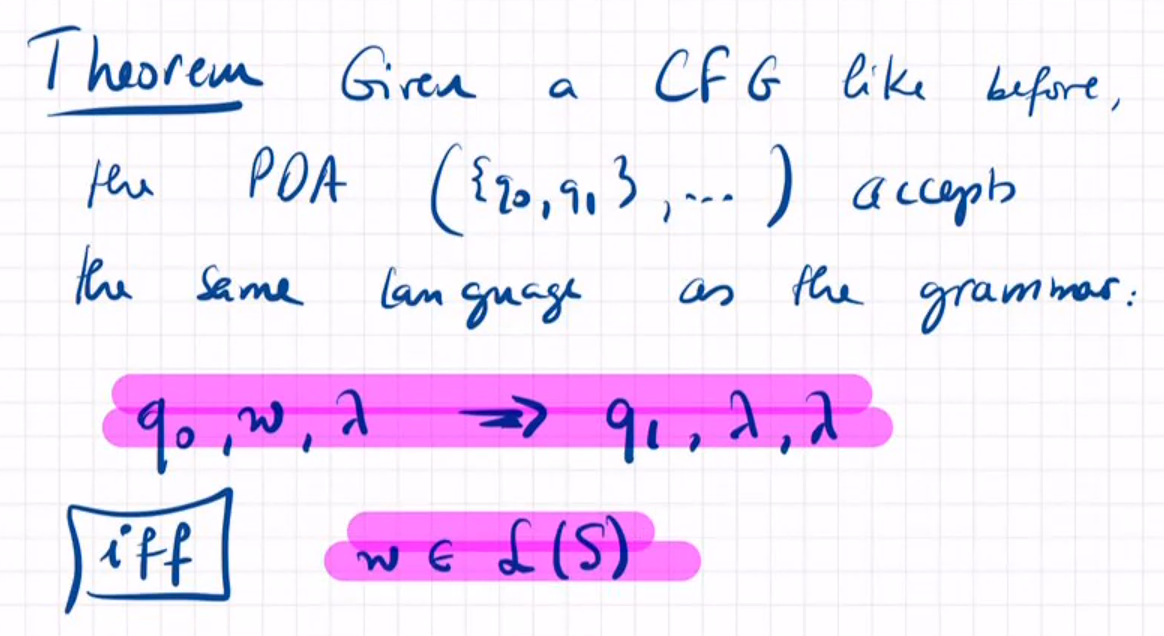 Theorem Given a CFG like before,
the PDA ({q₀,q₁},...) accepts
the same language as the grammar:
q₀, w, λ ⇒ q₁, λ, λ
iff w ∈ ℒ(S)